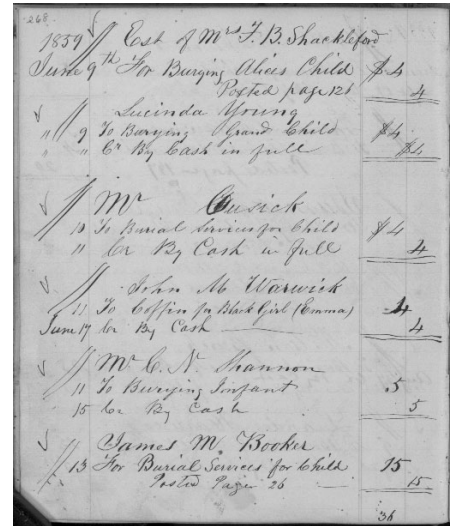 268
1859 Est of Mrs F. B. Shackleford
June 9th For Burying Alices Child $4
Posted page 126 4
Lucinda Young
" 9 To Burying Grand Child $4
" Cr By Cash in full $4
Mr Cusick
10 To Burial Services for Child $4
" Cr By Cash in full 4
John M Warwick
11 To Coffin for Black Girl (Emma) 4
June 17 Cr By Cash 4
Mr C. N. Shannon
11 To Burying Infant 5
15 Cr By Cash 5
James M. Booker
13 For Burial Services for Child 15
Posted Page 26 15
36